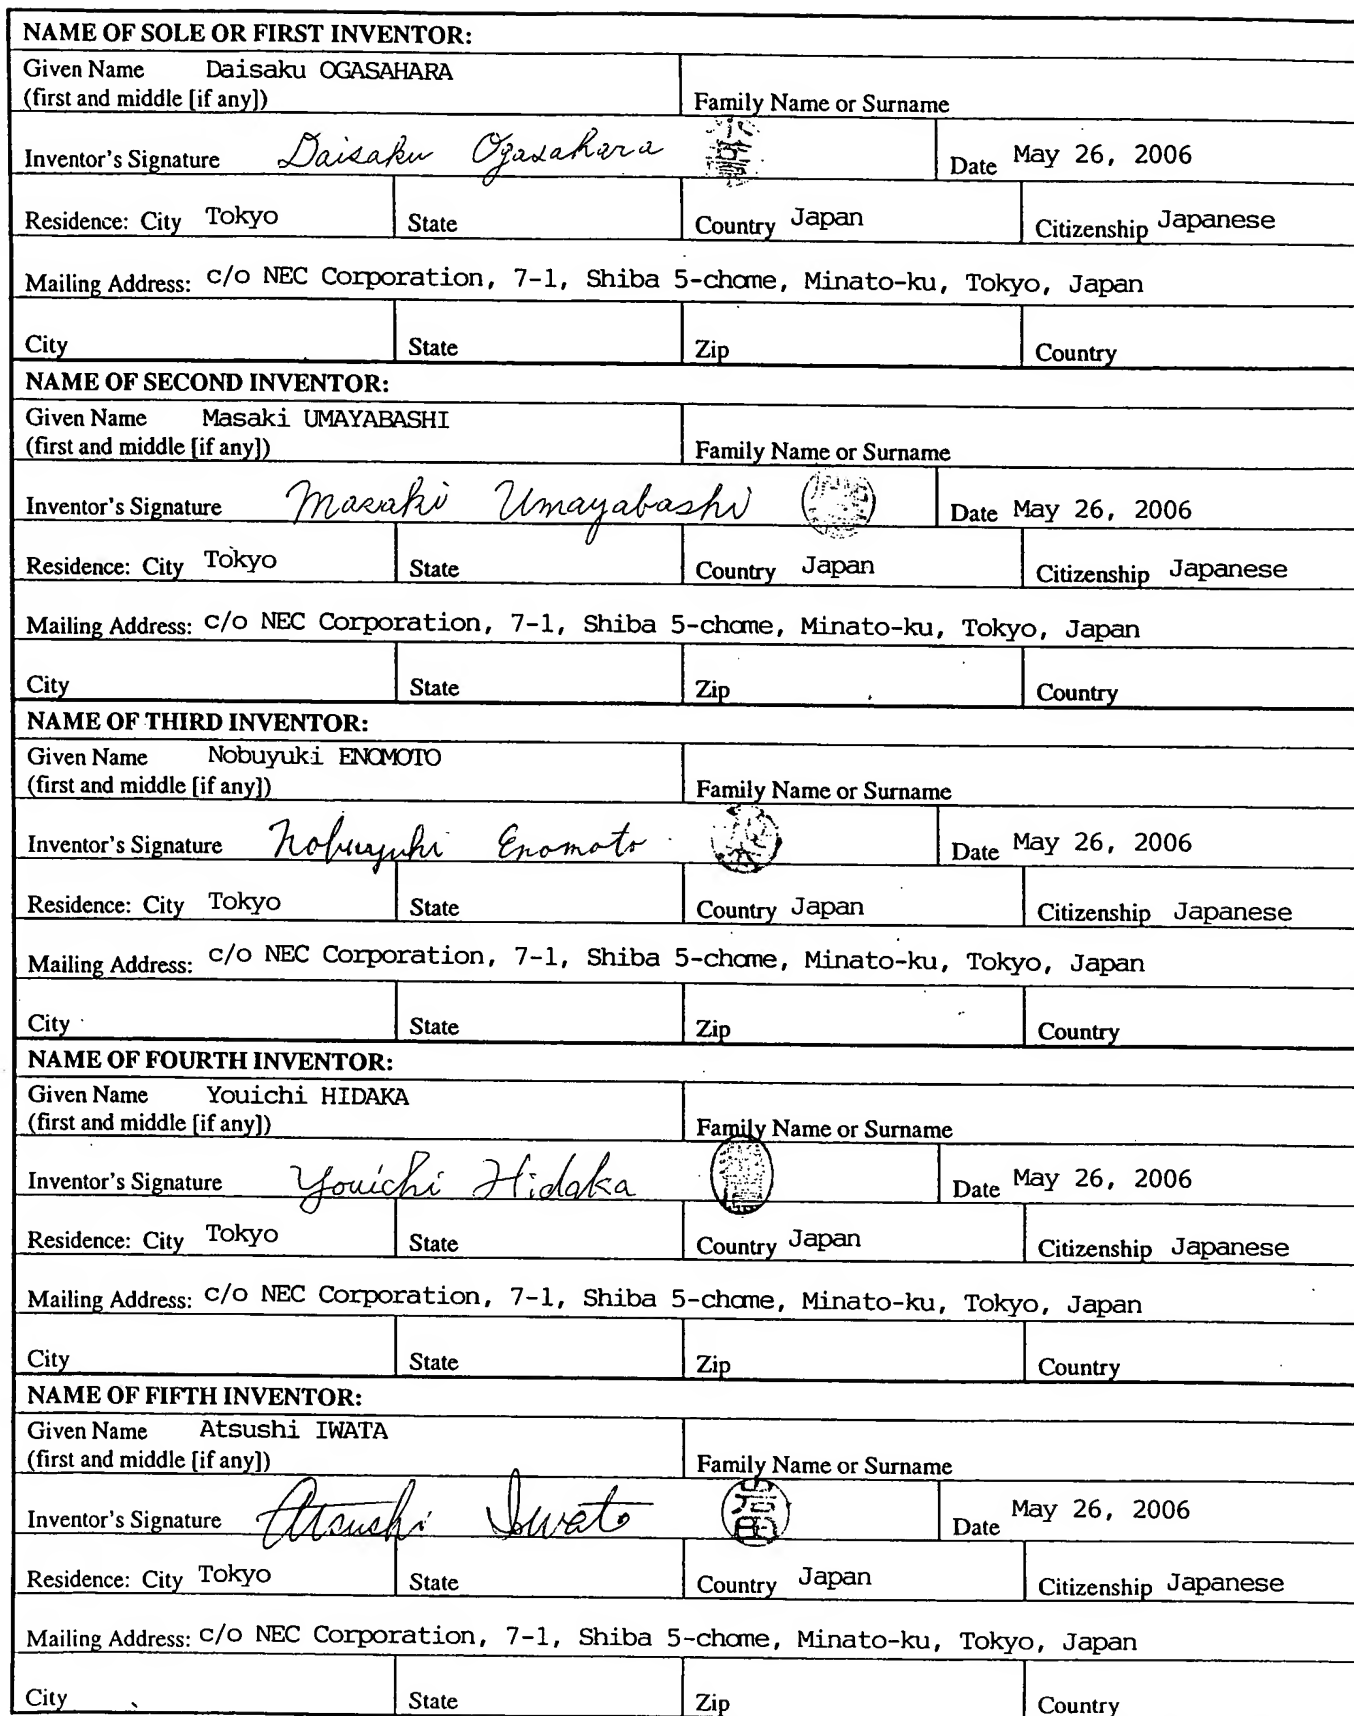 NAME OF SOLE OR FIRST INVENTOR:
Given Name Daisaku OGASAHARA
(first and middle [if any]) Family Name or Surname
Inventor's Signature Daisaku Ogasahara Date May 26, 2006
Residence: City Tokyo State Country Japan Citizenship Japanese
Mailing Address: c/o NEC Corporation, 7-1, Shiba 5-chome, Minato-ku, Tokyo, Japan
City State Zip Country
NAME OF SECOND INVENTOR:
Given Name Masaki UMAYABASHI
(first and middle [if any]) Family Name or Surname
Inventor's Signature Masaki Umayabashi Date May 26, 2006
Residence: City Tokyo State Country Japan Citizenship Japanese
Mailing Address: c/o NEC Corporation, 7-1, Shiba 5-chome, Minato-ku, Tokyo, Japan
City State Zip Country
NAME OF THIRD INVENTOR:
Given Name Nobuyuki ENOMOTO
(first and middle [if any]) Family Name or Surname
Inventor's Signature Nobuyuki Enomoto Date May 26, 2006
Residence: City Tokyo State Country Japan Citizenship Japanese
Mailing Address: c/o NEC Corporation, 7-1, Shiba 5-chome, Minato-ku, Tokyo, Japan
City State Zip Country
NAME OF FOURTH INVENTOR:
Given Name Youichi HIDAKA
(first and middle [if any]) Family Name or Surname
Inventor's Signature Youichi Hidaka Date May 26, 2006
Residence: City Tokyo State Country Japan Citizenship Japanese
Mailing Address: c/o NEC Corporation, 7-1, Shiba 5-chome, Minato-ku, Tokyo, Japan
City State Zip Country
NAME OF FIFTH INVENTOR:
Given Name Atsushi IWATA
(first and middle [if any]) Family Name or Surname
Inventor's Signature Atsushi Iwata Date May 26, 2006
Residence: City Tokyo State Country Japan Citizenship Japanese
Mailing Address: c/o NEC Corporation, 7-1, Shiba 5-chome, Minato-ku, Tokyo, Japan
City State Zip Country